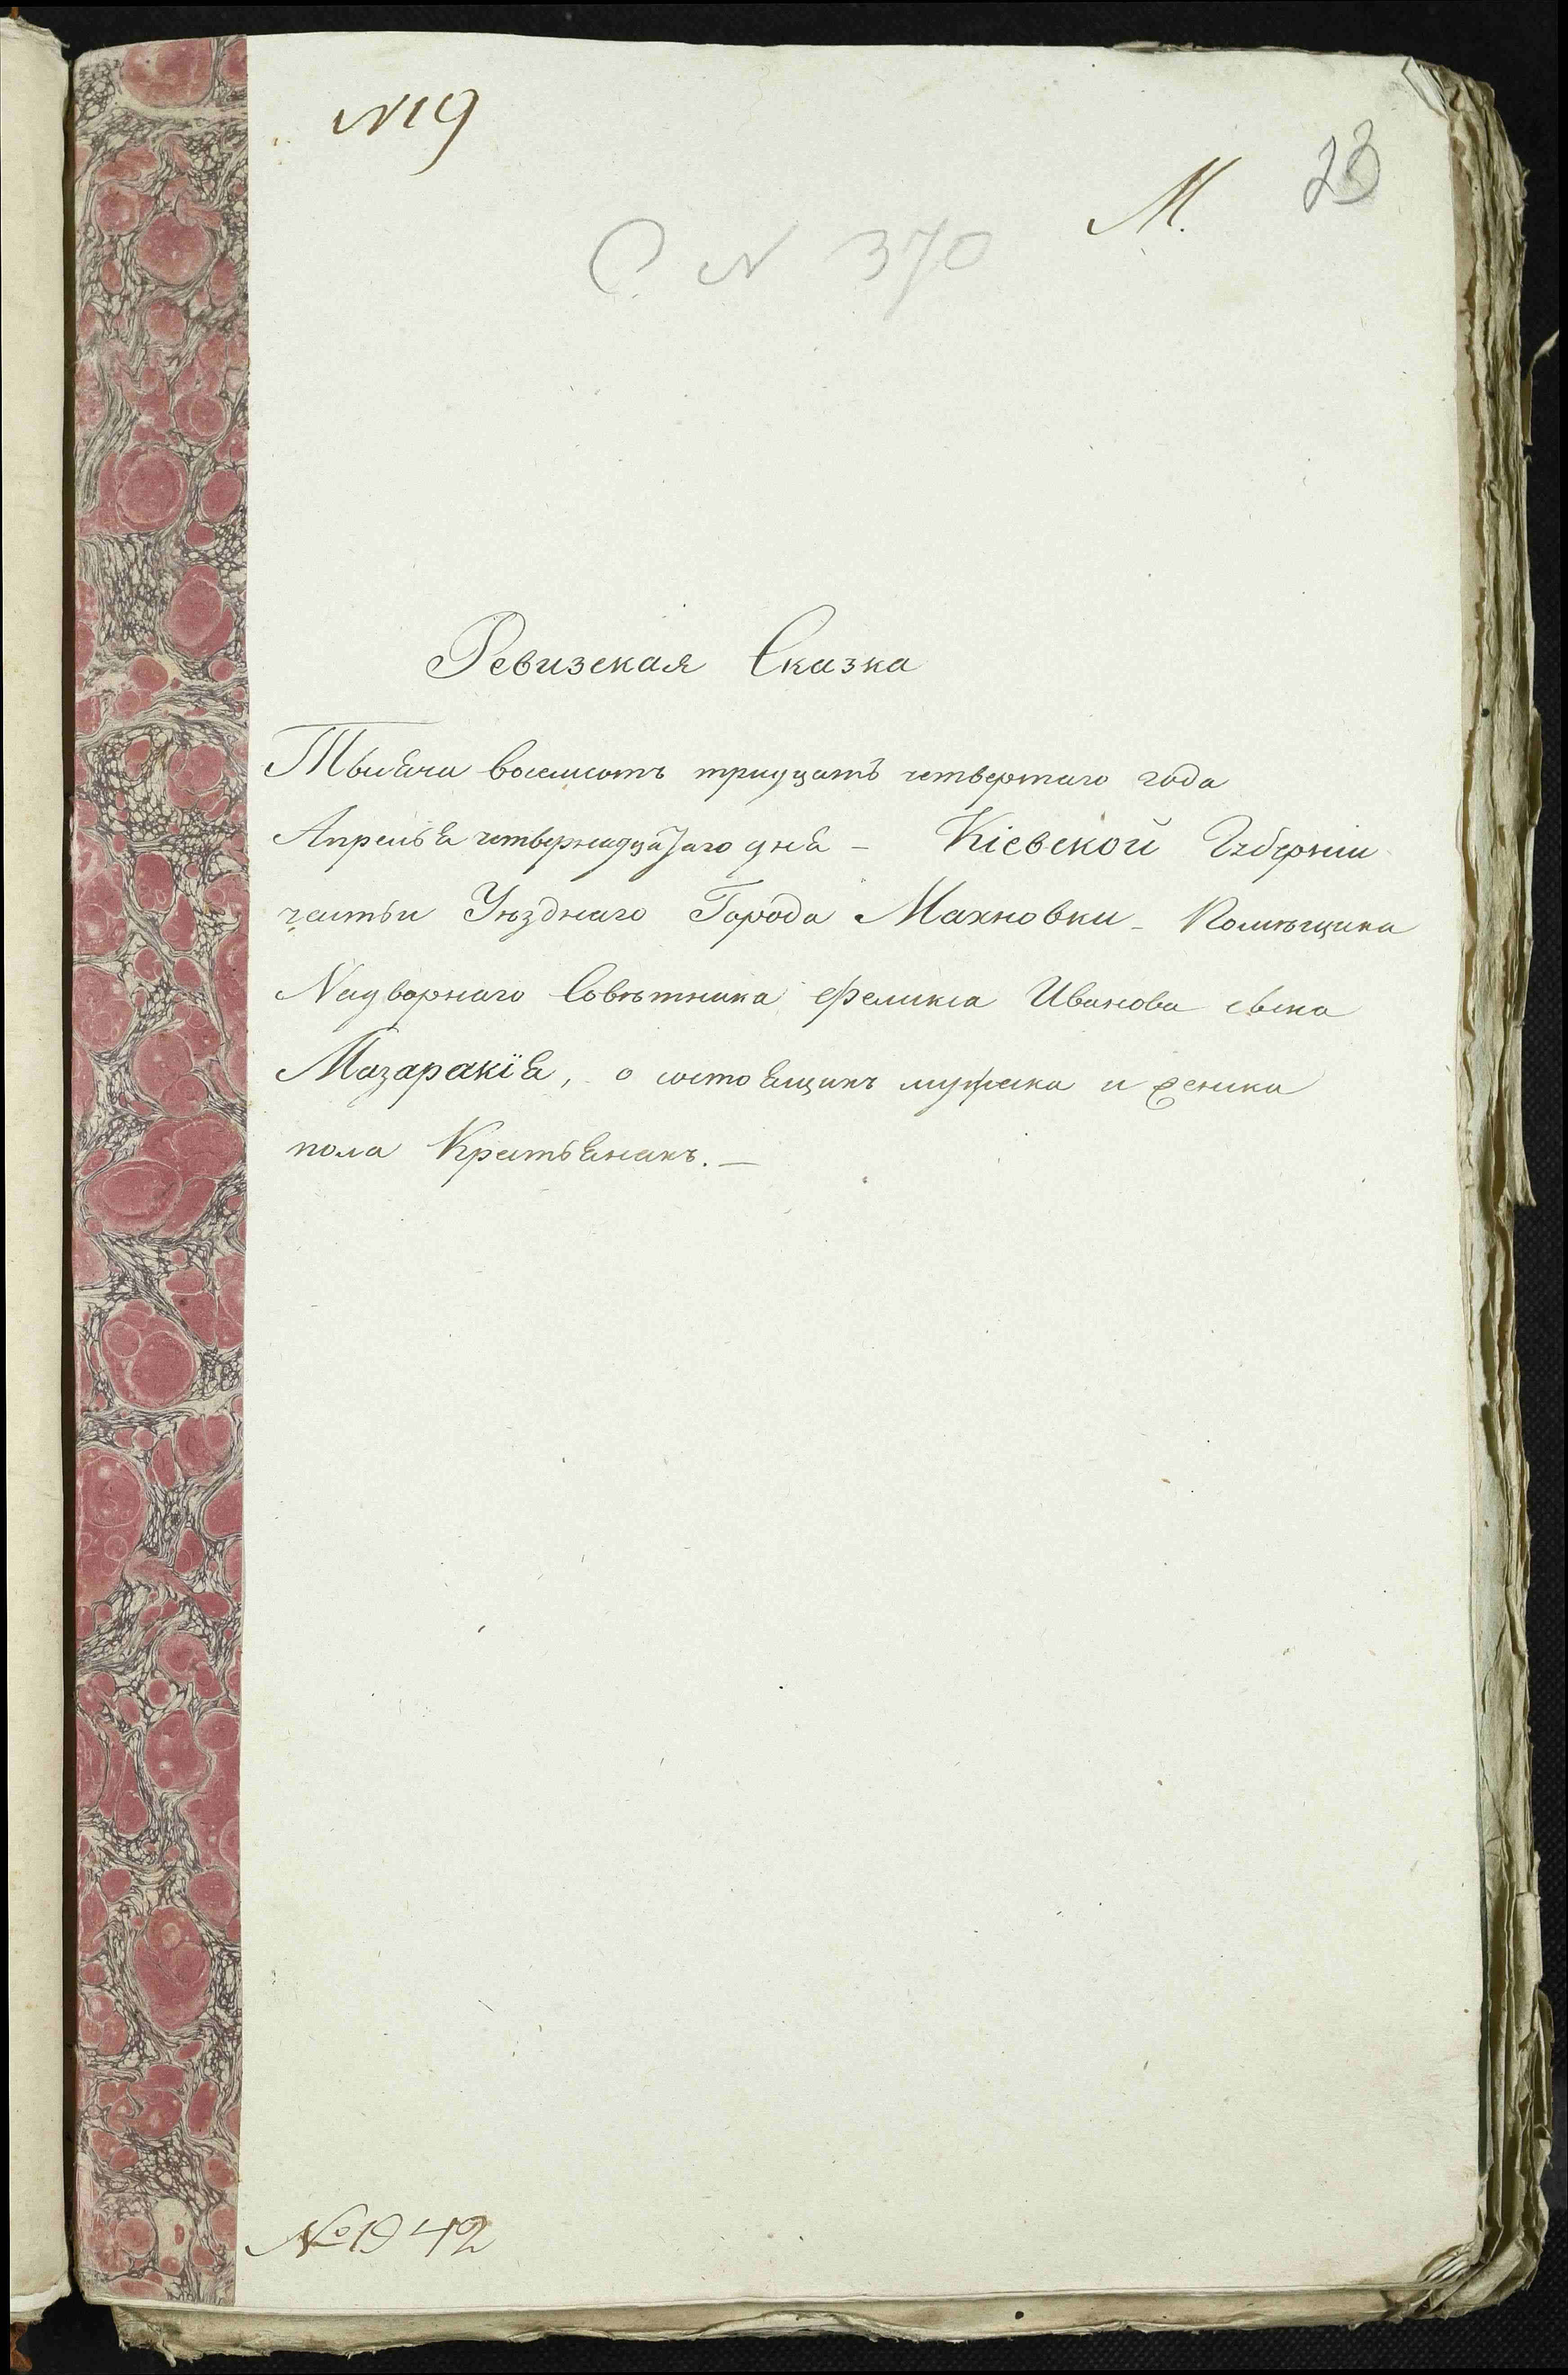 № 19
М.
23
С. N 370
Ревизская Сказка
Тысяча восемсотъ тридцатъ четвертаго года
Апрелья четвернадцатаго дня – Кіевской Губерніи
частьи Уѣзднаго Города Махновки – Помѣщика
Надворнаго Совѣтника Феликса Иванова сына
Мазаракія, о состоящихъ мужска и женска
пола Крестьянахъ. –
№ 1942